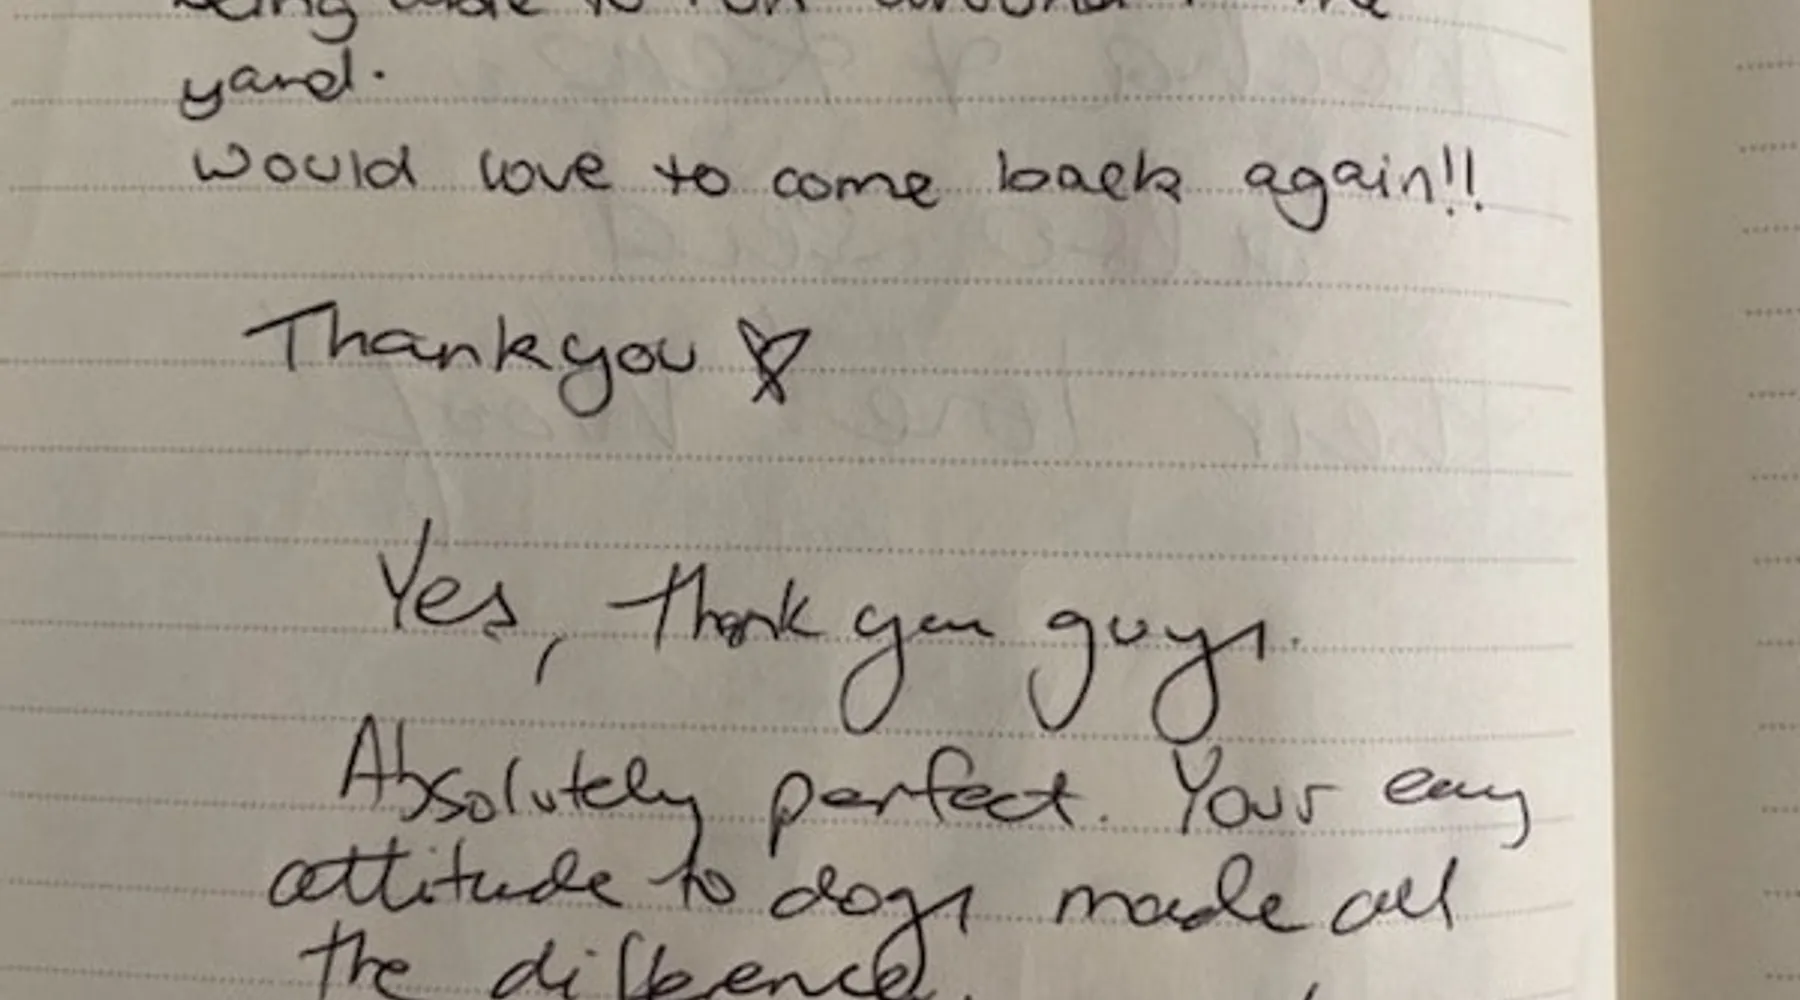 being able to run around in the
yard.
would love to come back again!!
Thankyou ♡
Yes, thank you guys.
Absolutely perfect. Your easy
attitude to dogs made all
the difference.